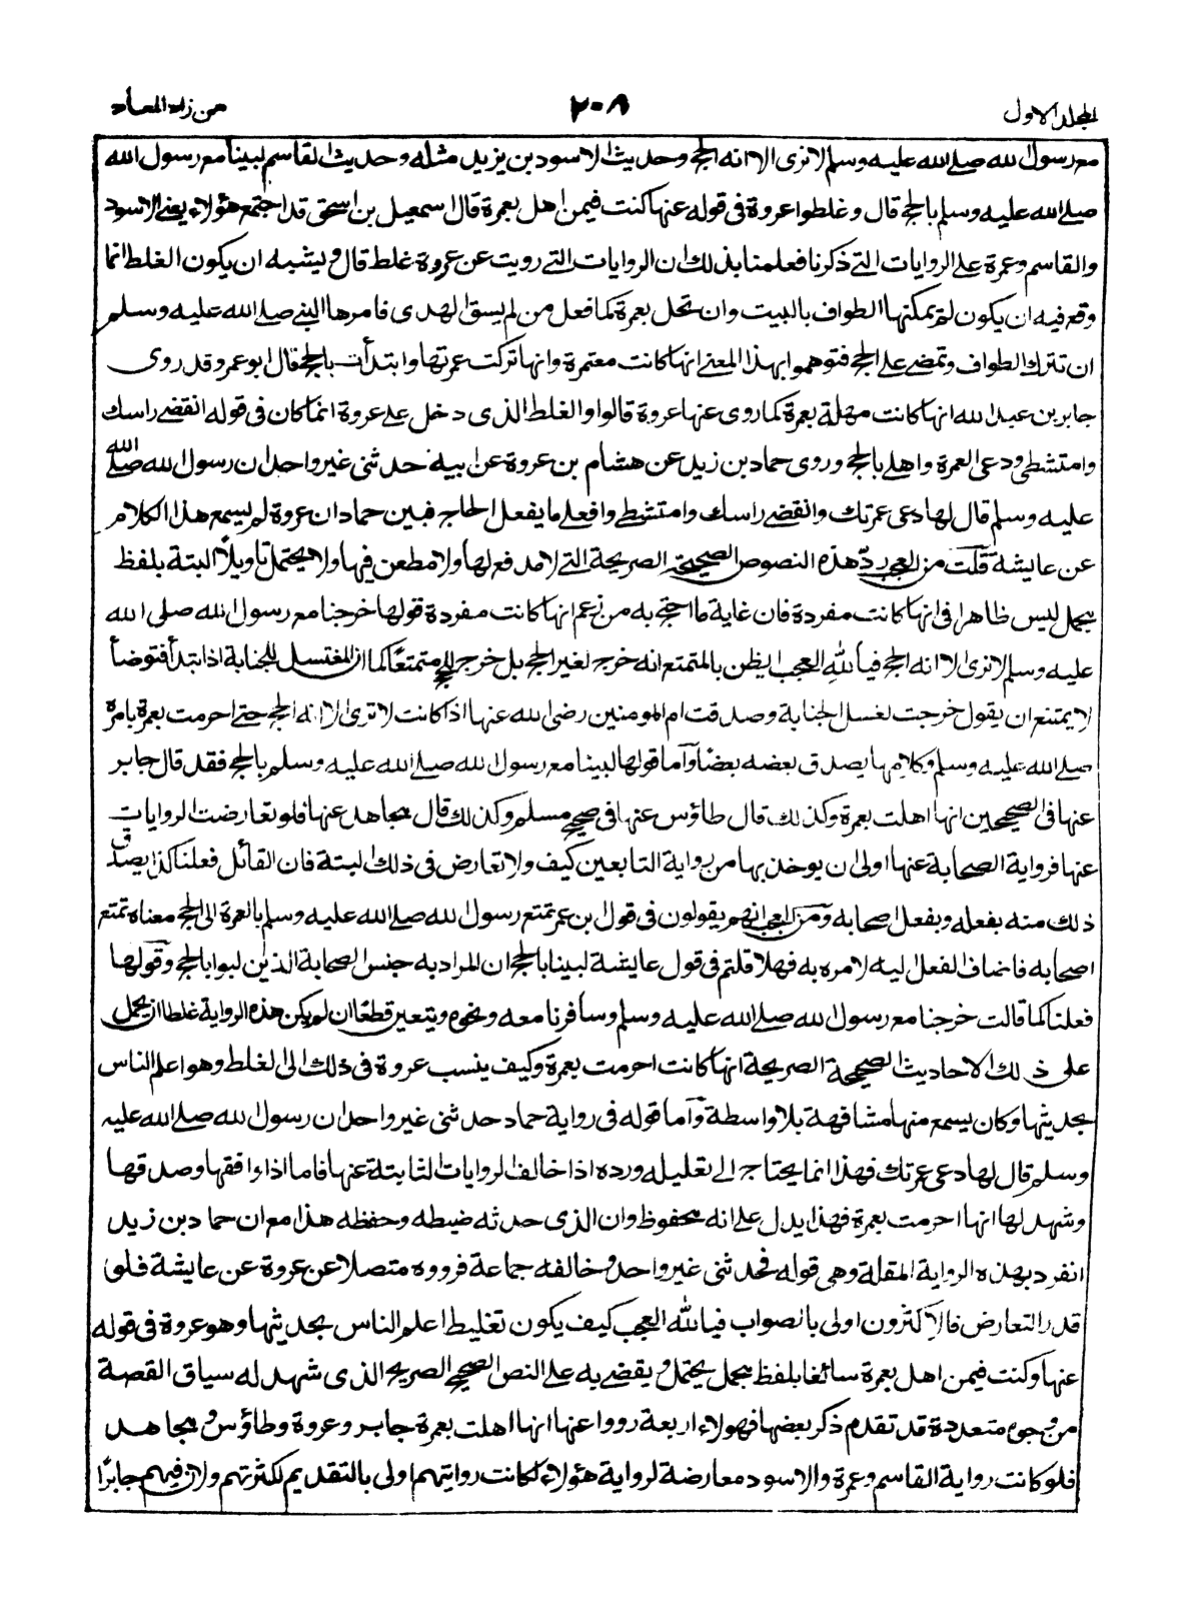 المجلد الاول
٢٠٨
من زاد المعاد
مع رسول الله صلے الله عليه وسلم لا نرى الا انه الحج وحديث الاسود بن يزيد مثله وحديث القاسم لبينا مع رسول الله
صلے الله عليه وسلم بالحج قال وغلطوا عروة فى قوله عنها كنت فيمن اهل بعمرة قال اسمعيل بن اسحق قد اجتمع هؤلاء يعنے الاسود
والقاسم وعمرة علے الروايات التے ذكرنا فعلمنا بذلك ان الروايات التے رويت عن عروة غلط قال ويشبه ان يكون الغلط انما
وقع فيه ان يكون لم يمكنها الطواف بالبيت وان تحل بعمرة كما فعل من لم يسق الهدى فامرها النبے صلے الله عليه وسلم
ان تترك الطواف وتمضے علے الحج فتوهموا بهذا المعنے انها كانت معتمرة وانها تركت عمرتها وابتدأت بالحج قال ابو عمر وقد روى
جابر بن عبد الله انها كانت مهلة بعمرة كما روى عنها عروة قالوا والغلط الذى دخل علے عروة انما كان فى قوله انقضے راسك
وامتشطى ودعى العمرة واهلے بالحج وروى حماد بن زيد عن هشام بن عروة عن ابيه حدثنى غير واحد ان رسول الله صلے الله
عليه وسلم قال لها دعى عمرتك وانقضے راسك وامتشطے وافعلے ما يفعل الحاج فبين حماد ان عروة لم يسمع هذا الكلام
عن عايشة قلت من العجب ردّ هذه النصوص الصحيحة الصريحة التے لا مدفع لها ولا مطعن فيها ولا يحتمل تاويلاً البتة بلفظ
مجمل ليس ظاهرا فى انها كانت مفردة فان غاية ما احتج به من زعم انها كانت مفردة قولها خرجنا مع رسول الله صلى الله
عليه وسلم لا نرى الا انه الحج فيا للهِ العجب ايظن بالمتمتع انه خرج لغير الحج بل خرج للحج متمتعًا كما ان المغتسل للجنابة اذا ابتدأ فتوضأ
لا يمتنع ان يقول خرجت لغسل الجنابة وصدقت ام المومنين رضى الله عنها اذا كانت لا ترى الا انه الحج حتے احرمت بعمرة بامره
صلے الله عليه وسلم وكلامها يصدق بعضه بعضًا وآما قولها لبينا مع رسول الله صلے الله عليه وسلم بالحج فقد قال جابر
عنها فى الصحيحين انها اهلت بعمرة وكذلك قال طاؤس عنها فى صحيح مسلم وكذلك قال مجاهد عنها فلو تعارضت الروايات
عنها فرواية الصحابة عنها اولى ان يوخذ بها من رواية التابعين كيف ولا تعارض فى ذلك البتة فان القائل فعلنا كذا يصدق
ذلك منه بفعله وبفعل اصحابه ومن العجب انهم يقولون فى قول بن عمر تمتع رسول الله صلے الله عليه وسلم بالعمرة الى الحج معناه تمتع
اصحابه فاضاف الفعل اليه لامره به فهلا قلتم فى قول عايشة لبينا بالحج ان المراد به جنس الصحابة الذين لبوا بالحج وقولها
فعلنا كما قالت خرجنا مع رسول الله صلے الله عليه وسلم وسافرنا معه ونحوه ويتعين قطعًا ان لم يكن هذه الرواية غلطا ان يحمل
على ذلك الاحاديث الصحيحة الصريحة انها كانت احرمت بعمرة وكيف ينسب عروة فى ذلك الى الغلط وهو اعلم الناس
بحديثها وكان يسمع منها مشافهة بلا واسطة وآما قوله فى رواية حماد حدثنى غير واحد ان رسول الله صلے الله عليه
وسلم قال لها دعى عمرتك فهذا انما يحتاج الے تعليله ورده اذا خالف الروايات الثابتة عنها فاما اذا وافقها وصدقها
وشهد لها انها احرمت بعمرة فهذا يدل علے انه محفوظ وان الذى حدثه ضبطه وحفظه هذا مع ان حماد بن زيد
انفرد بهذه الرواية المقللة وهى قوله فحدثنى غير واحد وخالفه جماعة فرووه متصلا عن عروة عن عايشة فلو
قدر التعارض فالاكثرون اولى بالصواب فيا للّه العجب كيف يكون تغليط اعلم الناس بحديثها وهو عروة فى قوله
عنها وكنت فيمن اهل بعمرة سائغا بلفظ مجمل يحتمل ويقضے به علے النص الصحيح الصريح الذى شهد له سياق القصة
من وجوه متعددة قد تقدم ذكر بعضها فهولاء اربعة رووا عنها انها اهلت بعمرة جابر وعروة وطاؤس ومجاهد
فلو كانت رواية القاسم وعمرة والاسود معارضة لرواية هئولاء لكانت روايتهم اولى بالتقديم لكثرتهم ولان فيهم جابرًا